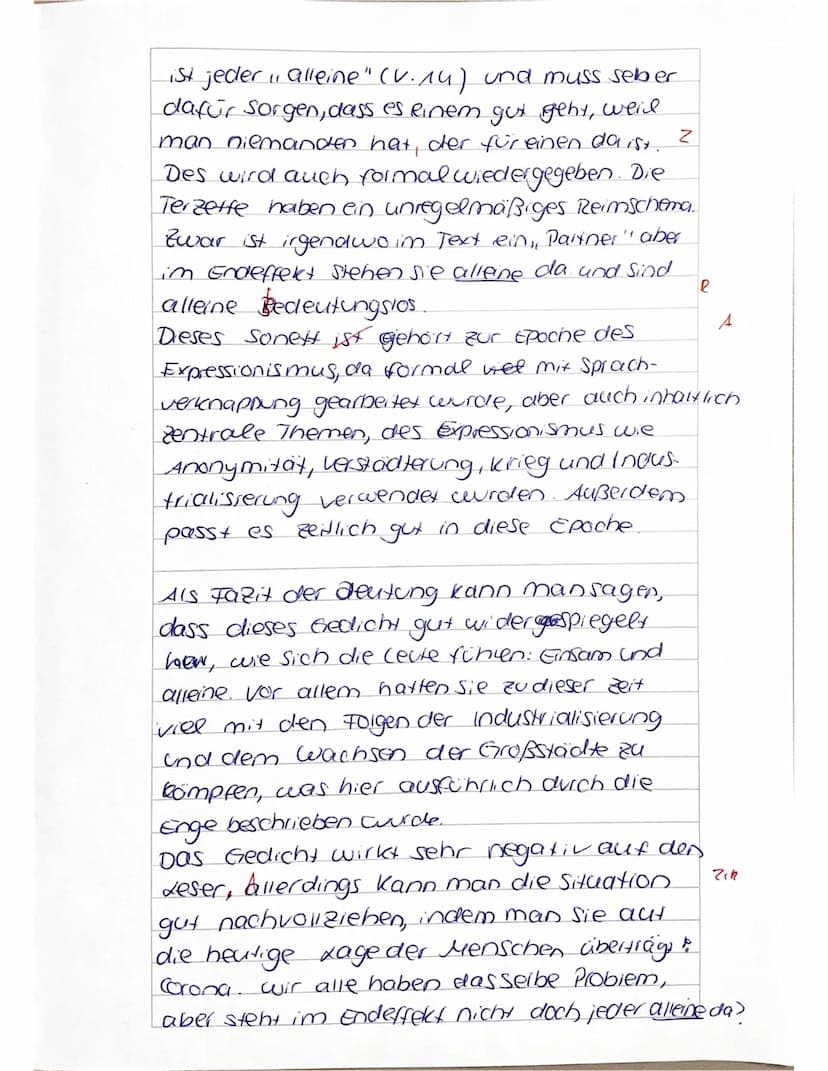 ist jeder „alleine" (V.14) und muss selber
dafür sorgen, dass es einem gut geht, weil
man niemanden hat, der für einen da ist. Z
Des wird auch formal wiedergegeben. Die
Terzette haben ein unregelmäßiges Reimschema.
Zwar ist irgendwo im Text ein „Partner" aber
im Endeffekt stehen sie alleine da und sind
alleine bedeutungslos. R
Dieses Sonett ist gehört zur Epoche des A
Expressionismus, da formal viel mit Sprach-
verknappung gearbeitet wurde, aber auch inhaltlich
zentrale Themen, des Expressionismus wie
Anonymität, Verstädterung, Krieg und Indus-
trialisierung verwendet wurden. Außerdem
passt es zeitlich gut in diese Epoche.
Als Fazit der Deutung kann man sagen,
dass dieses Gedicht gut widergespiegelt
wie sich die Leute fühlen: Einsam und
alleine. Vor allem hatten sie zu dieser Zeit
viel mit den Folgen der Industrialisierung
und dem Wachsen der Großstädte zu
kämpfen, was hier ausführlich durch die
Enge beschrieben wurde.
Das Gedicht wirkt sehr negativ auf den
Leser, Allerdings kann man die Situation
gut nachvollziehen, indem man sie auf
die heutige Lage der Menschen überträgt:
Corona. Wir alle haben dasselbe Problem,
aber steht im Endeffekt nicht doch jeder alleine da?